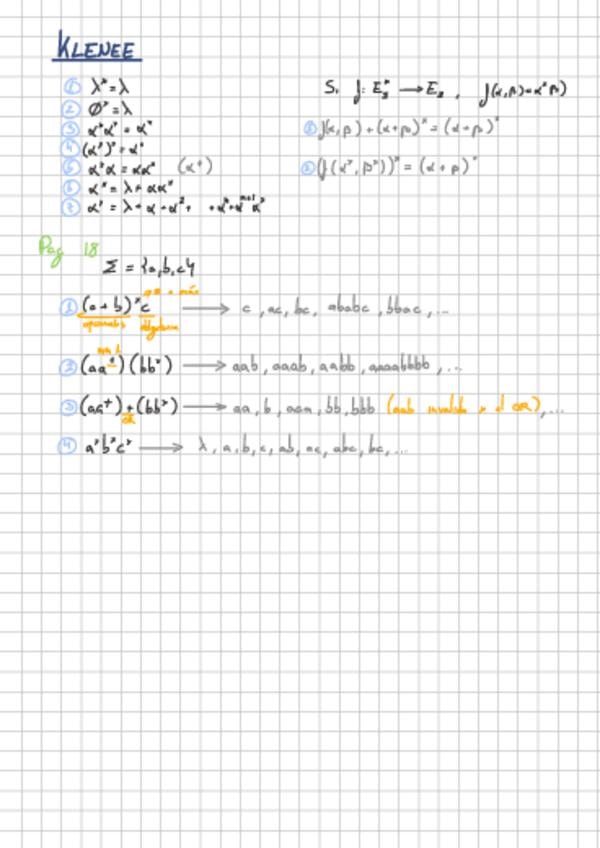 KLENEE
① λ* = λ
② Ø* = λ
③ α*α* = α*
④ (α*)* = α*
⑤ α*α = αα* (α⁺)
⑥ α* = λ + αα*
⑦ α* = λ + α + α² + + αⁿ + αⁿ⁺¹ α*
Si f: E
⟶ E
, f(α,β) = α*β)
① f(α,β) + (α+β)* = (α+β)*
② (f(α*,β*))* = (α+β)*
Pag 18
Σ = {a,b,c}
① (a+b)*c ⟶ c, ac, bc, ababc, bbac, ...
0 o más
② (aa⁺)(bb*) ⟶ aab, aaab, aabb, aaaabbbb, ...
③ (aa⁺)+(bb*) ⟶ aa, b, aaa, bb, bbb (aab x el OR), ...
OR
④ a*b*c* ⟶ λ, a, b, c, ab, ac, abc, bc, ...